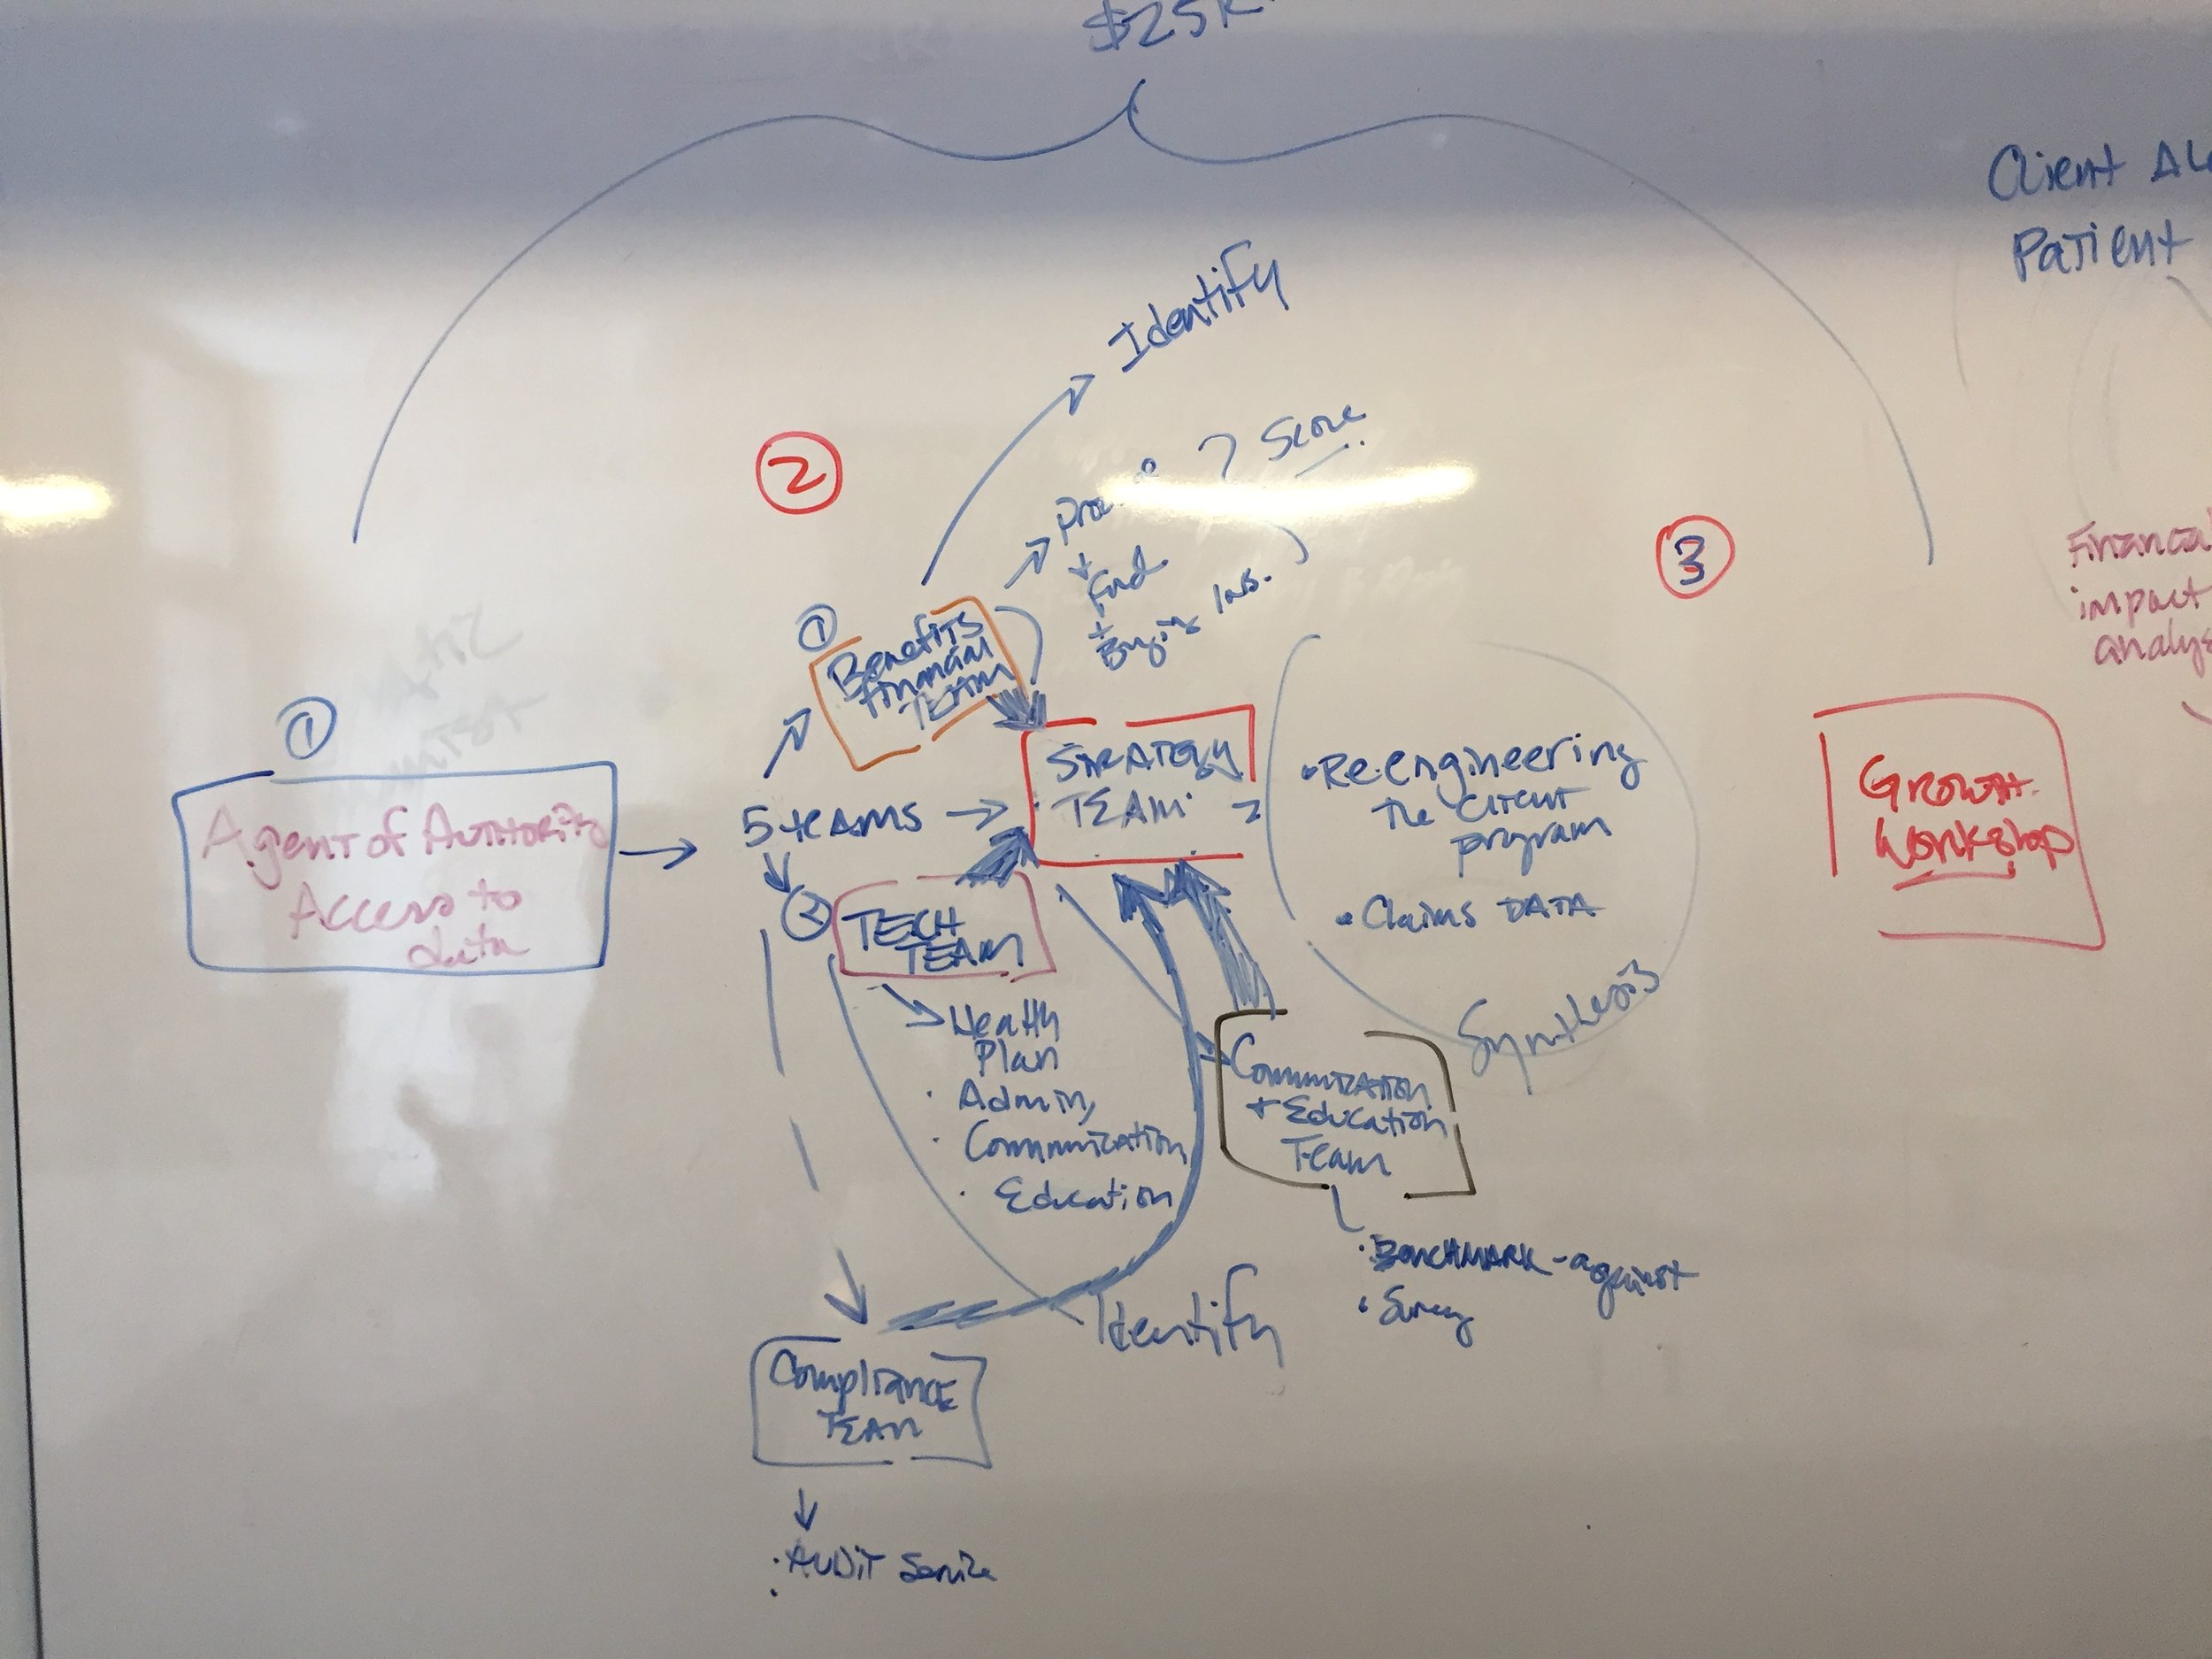 $25K
Client
Patient
Identify
Score
2
3
Financial
impact
+
+
Buying Ins.
1
Benefits
Financial
TEAM
1
Agent of Authority
Access to
data
5 teams
STRATEGY
TEAM
• Re-engineering
the client
program
• Claims DATA
Synthesis
Growth
Workshop
2
TECH
TEAM
Health
Plan
• Admin,
• Communication
• Education
Communication
+ Education
Team
• BENCHMARK - against
• Survey
Identify
Compliance
TEAM
• AUDIT Service